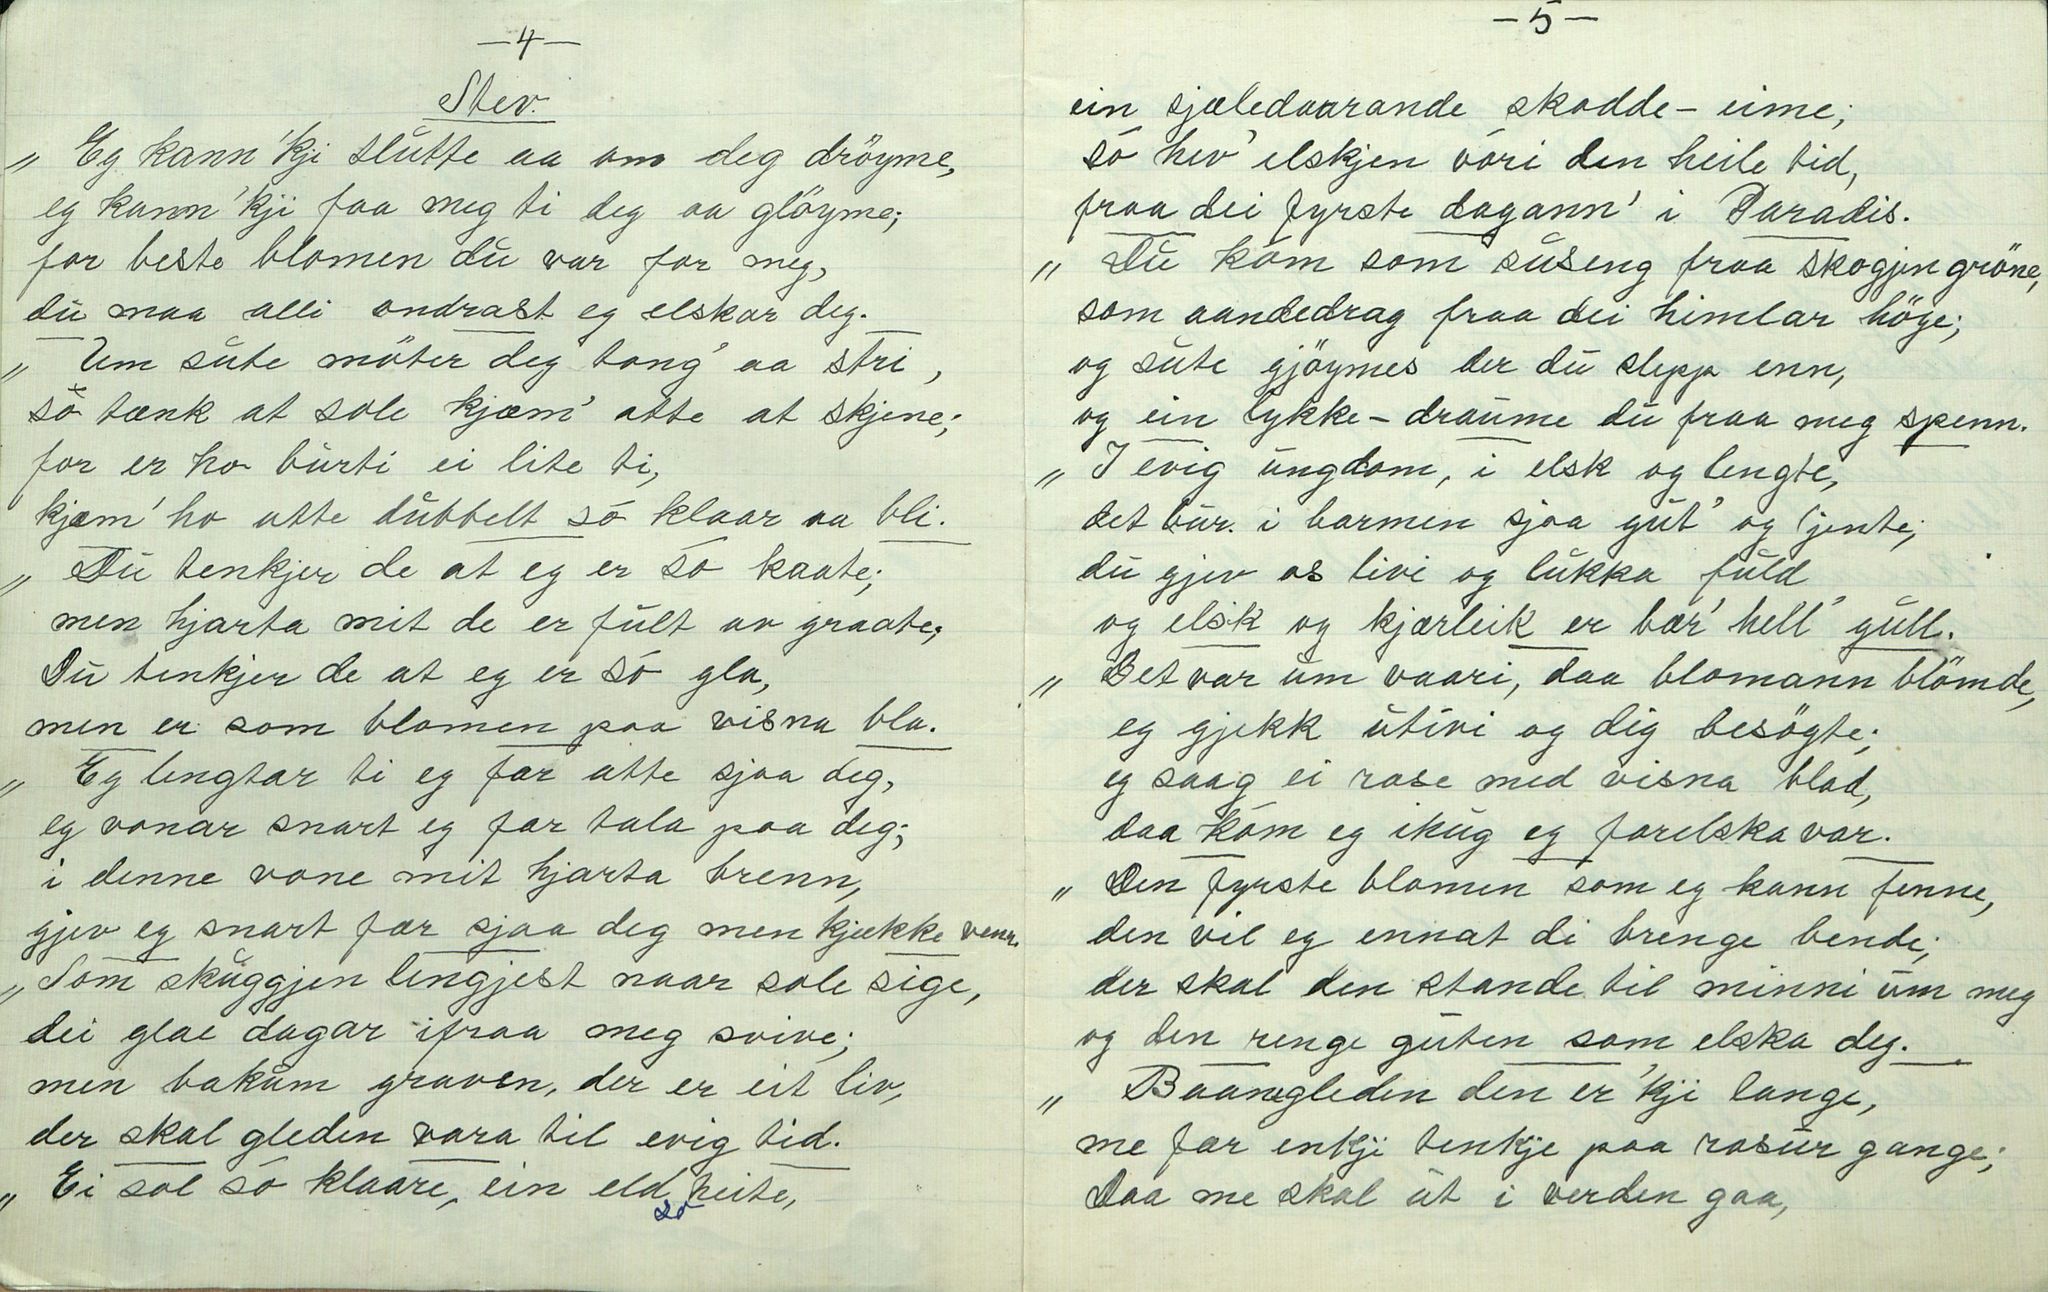 —4—
Stev.
„ Eg kann 'kji slutte aa om deg dröyme,
eg kann 'kji faa meg ti deg aa glöyme;
for beste blomen du var for meg,
du maa alli ondrast eg elskar deg.
„ Um sute möter deg tong' aa stri,
só tænk at sole kjæm' atte at skjene;
for er ho burti ei lite ti,
kjæm' ho atte dubbelt só klaar aa bli.
„ Du tenkjer de at eg er so kaate;
men hjarta mit de er fult av graate;
Du tenkjer de at eg er só gla,
men er som blomen paa visna bla.
„ Eg lengtar ti eg fær atte sjaa deg,
eg vonar snart eg fær tala paa deg;
i denne vone mit hjarta brenn,
gjev eg snart fær sjaa deg men kjekke venn.
„ Som skuggjen lengjest naar sole sige,
dei glae dagar ifraa meg svive;
men bakum graven, der er eit liv,
der skal gleden vara til evig tid.
„ Ei sol so klaare, ein eld so heite,
—5—
ein sjæledaarande skodde-eime;
só hev' elskjen vóri den heile tid,
fraa dei fyrste dagann' i Paradis.
„ Du kóm som suseng fraa skogjen gröne,
som aandedrag fraa dei himlar höge;
og sute gjöymes der du slepp enn,
og ein lykke-draume du fraa meg spenn.
„ I evig ungdom, i elsk og lengte,
det bur i barmen sjaa gut' og jente;
du gjev os livi og lukka fuld
og elsk og kjærleik er bær' hell' gull.
„ Det var um vaari, daa blomann blömde,
eg gjekk utivi og dig besögte;
eg saag ei rose med visna blad,
daa kóm eg ihug eg forelska var.
„ Den fyrste blomen som eg kann fenne,
den vil eg ennat di brenge bende;
der skal den stande til minni um meg
og den renge guten som elska deg.
„ Baanegleden den er 'kji lange,
me fær enkji tenkje paa rosur gange;
Daa me skal ut i verden gaa,